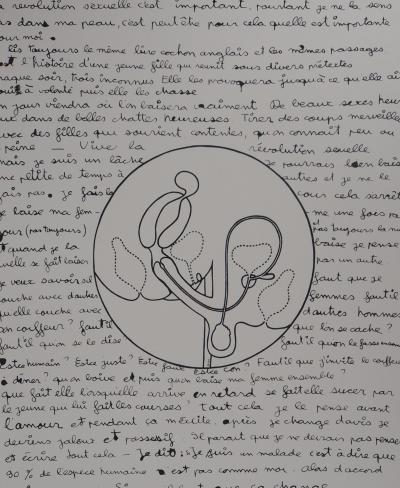 a révolution sexuelle c'est important, pourtant je ne la sens
as dans ma peau, c'est peut être pour cela quelle est importante
our moi.
lis toujours le même livre cochon anglais et les mêmes passages
est l'histoire d'une jeune fille qui réunit sous divers prétextes
haque soir, trois inconnus Elle les provoquera jusqu'à ce qu'elle ai
à volonté puis elle les chasse
n jour viendra où l'on baisera vraiment De beaux sexes heur
dans de belles chattes heureuses. Tirer des coups merveilleu
avec des filles qui sourient, contentes, qu'on connaît peu ou
peine — Vive la révolution sexuelle
mais je suis un lâche je pourrais bien baiser
me ptite de temps à autres et je ne le
fais pas. Je fais les cous cela s'arrêt
je baise ma fem- me une fois par
jour (pas toujours) pas toujours la nu
et quand je la baise je pense
quelle se fait baiser par un autre.
je veux savoir si faut que je
couche avec d'autres femmes faut il
qu'elle couche avec d'autres hommes
un coiffeur? faut il que l'on se cache?
faut il qu'on se le dise faut il qu'on le fasse
Est ce humain? Est ce juste? Est ce faux Est ce con? Faut il que j'invite le coiffeur
à dîner? qu'on boive et puis qu'on baise ma femme ensemble?
que fait elle lorsqu'elle arrive en retard se fait elle sucer par
le jeune qui lui fait les courses? Tout cela je le pense avant
l'amour et pendant ça m'excite. après je change d'avis je
deviens jaloux et possessif. Il paraît que je ne devrais pas penser
et écrire tout cela — Je dit: "Je suis un malade c'est à dire que
90 % de l'espèce humaine est pas comme moi. alors d'accord